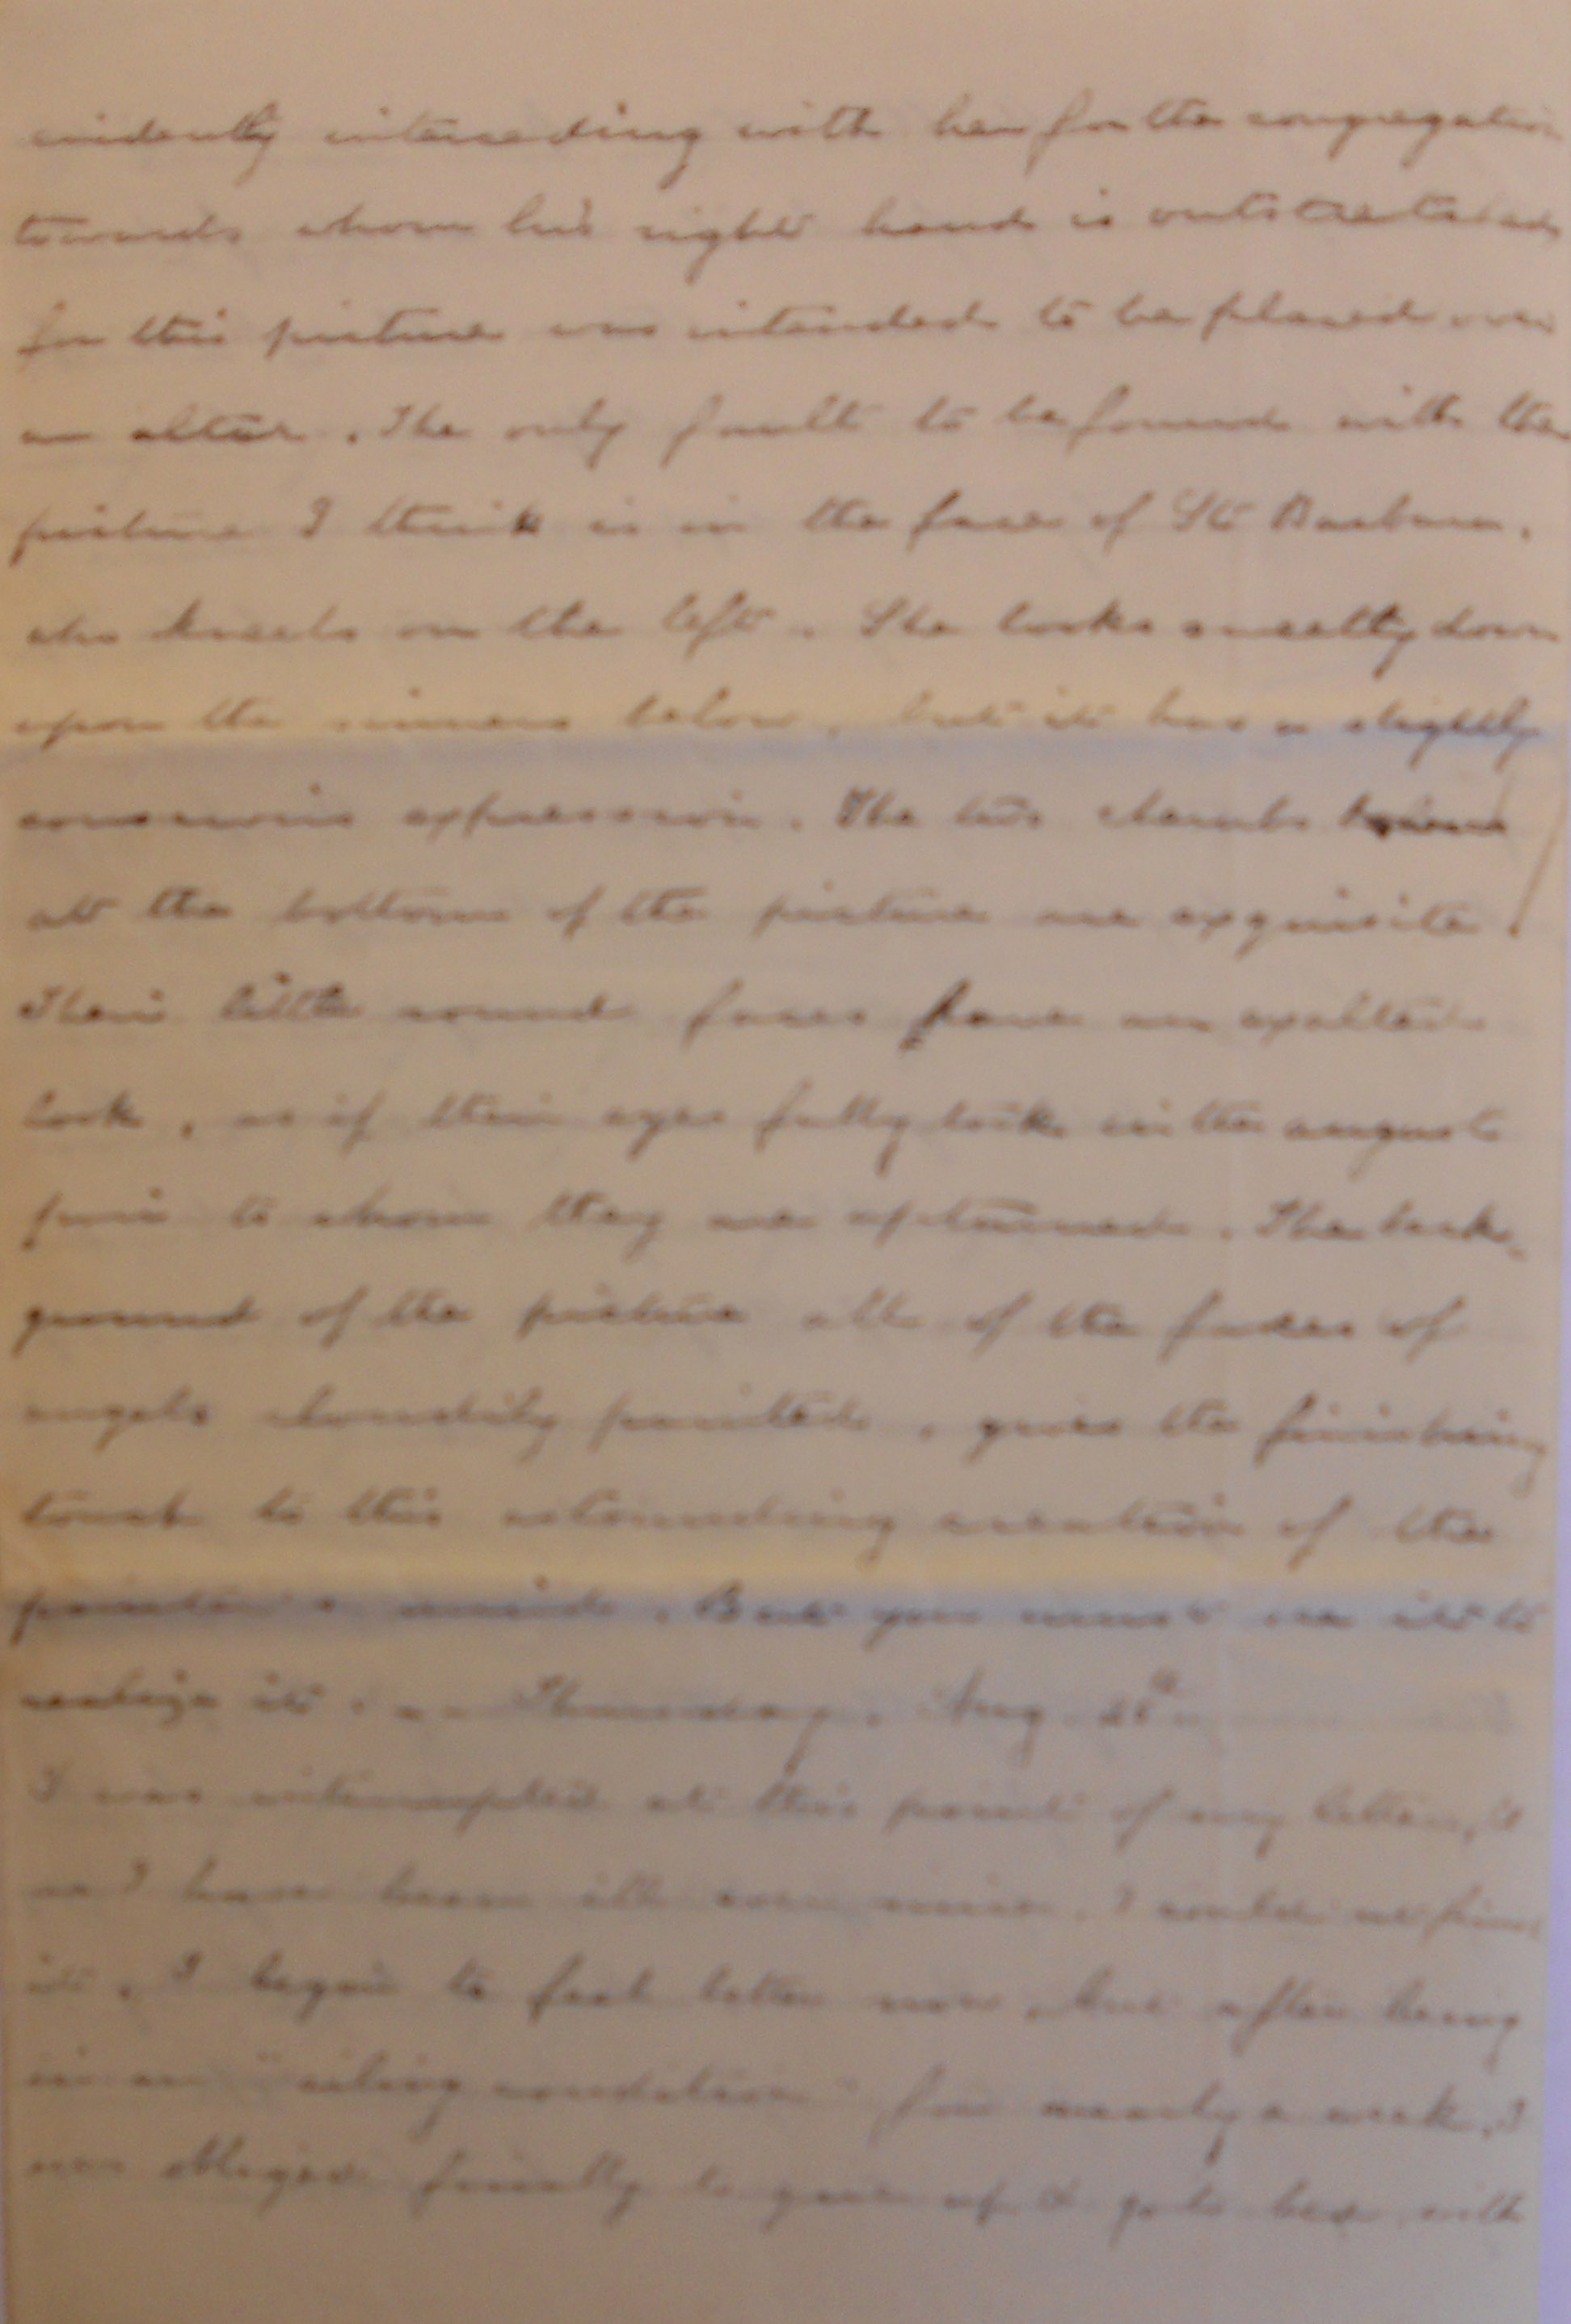 evidently interceding with her for the congregation
towards whom his right hand is outstretched
for this picture was intended to be placed over
an altar. The only fault to be found with the
picture I think is in the face of St Barbara.
who kneels on the left. She looks sweetly down
upon the sinners below, but it has a slightly
conscious expression. The two cherubs
at the bottom of the picture are exquisite.
Their little round faces have an exalted
look, as if their eyes fully took in the august
pair to whom they are upturned. The back-
ground of the picture all of the faces of
angels cloudily painted, gives the finishing
touch to this astounding creation of the
painter's mind. But you must see it to
realize it. -- Thursday. Aug
I was interrupted at this point of my letter, &
as I have been ill ever since, I couldn't
it. I begin to feel better now, but after being
in an "ailing condition" for nearly a week, I
was obliged finally to give up & go to bed with